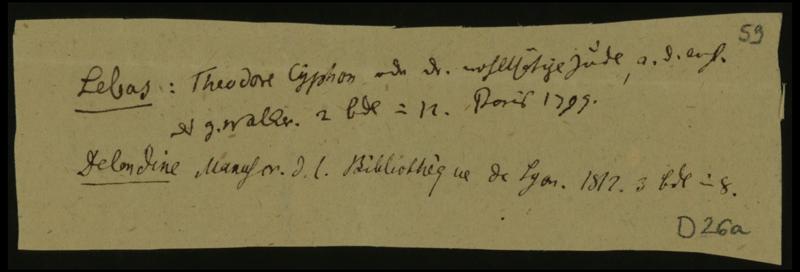 59
Lebas : Theodore Cyphon oder dr. wohltätige Jude, a. d. engl.
des G. Walker. 2 bde in 12. Paris 1799.
Delandine Manuscr. d. l. Bibliothèque de Lyon. 1812. 3 bde in 8.
D 26a